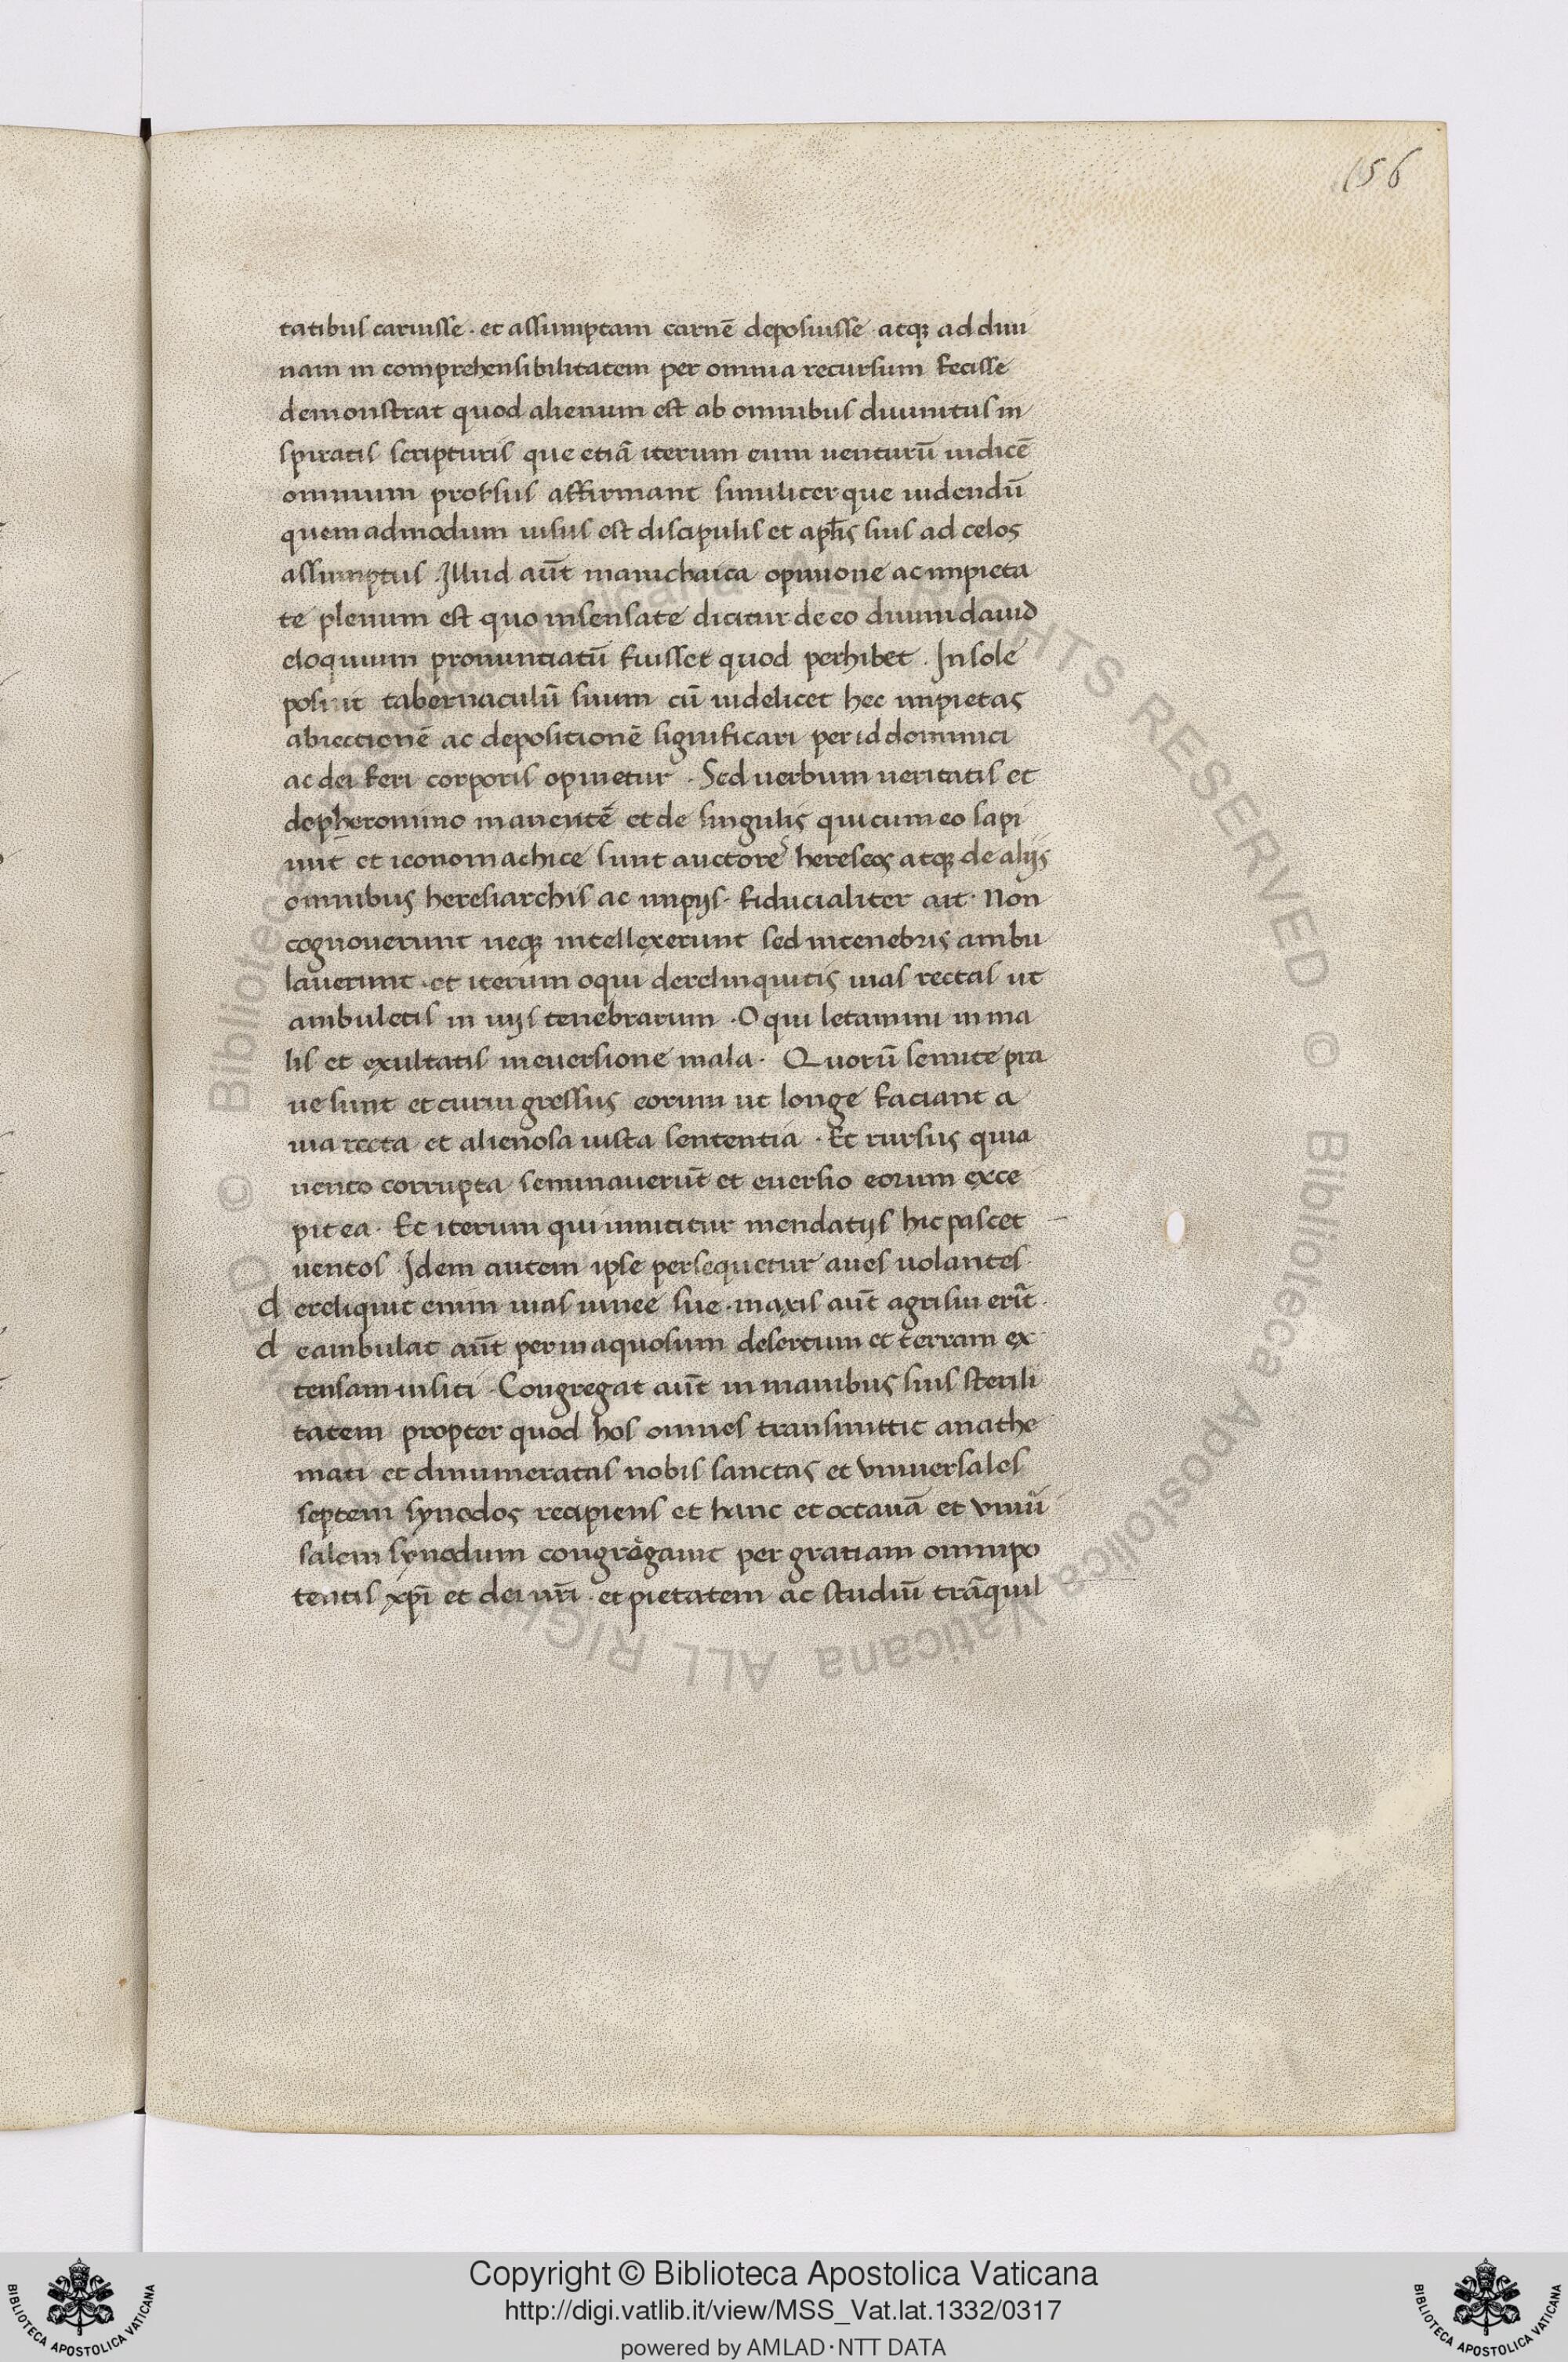 156
tatibus caruisse · et assumptam carnē deposuisse atqꝫ ad diui
nam in comprehensibilitatem per omnia recursum fecisse
demonstrat quod alienum est ab omnibus diuinitus in
spiratis scripturis que etiā iterum eum venturū iudicē
omnium prorsus affirmant similiter que uidendū
quem admodum uisus est discipulis et apl̄is suis ad celos
assumptus . Illud aūt manichaica opinione ac impieta
te plenum est quo insensate dicitur de eo diuini dauid
eloquium pronuntiatū fuisset quod perhibet . In sole
posuit tabernaculū suum cū uidelicet hec impietas
abiectionē ac depositionē significari per id dominici
ac dei feri corporis opinetur . Sed uerbum ueritatis et
de pheronimo manentē et de singulis qui cum eo sapi
unt et iconomachice sunt auctores hereseos atqꝫ de alijs
omnibus heresiarchis ac impijs fiducialiter ait · Non
cognouerunt neqꝫ intellexerunt sed in tenebris ambu
lauerunt · et iterum o qui derelinquitis uias rectas ut
ambuletis in uijs tenebrarum · O qui letamini in ma
lis et exultatis in euersione mala · Quorū semite pra
ue sunt et curui gressus eorum ut longe faciant a
uia recta et alienosa iusta sententia · Et rursus quia
uento corrupta seminauerūt et euersio eorum exce
pit ea · Et iterum qui innititur mendatijs hic pascet
uentos Idem autem ipse persequetur aues uolantes
d ereliquit enim uias uinee sue · maxis aūt agri sui erīt ·
d eambulat aūt per inaquosum desertum et terram ex
tensam in siti · Congregat aūt in manibus suis sterili
tatem propter quod hos omnes transmittit anathe
mati et dinumeratas nobis sanctas et vniuersales
septem synodos recipiens et hanc et octauā et vniū
salem synodum congregauit per gratiam omnipo
tentis xp̄i et dei nr̄i · et pietatem ac studiū trāquil
© Biblioteca Apostolica Vaticana ALL RIGHTS RESERVED © Biblioteca Apostolica Vaticana ALL RIGH
Copyright © Biblioteca Apostolica Vaticana
http://digi.vatlib.it/view/MSS_Vat.lat.1332/0317
powered by AMLAD·NTT DATA
BIBLIOTECA APOSTOLICA VATICANA
BIBLIOTECA APOSTOLICA VATICANA